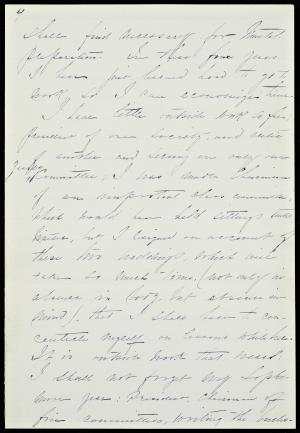 4
shall find necessary for
preparation. In these four years
I have just learned how to go to
work, so I can economize time.
I have little outside work to
President of one Society, and
committee; I was made Chairman
of an important class committee,
which would have held sittings
but I resigned on account of
these two weddings, which will
take so much time, (not only in
absence in body, but absence in
mind), that I shall have to con-
centrate myself on lessons while here.
It is outside work that wears.
I shall not forget my Sopho-
more year: President, Chairman of
five committees, writing the